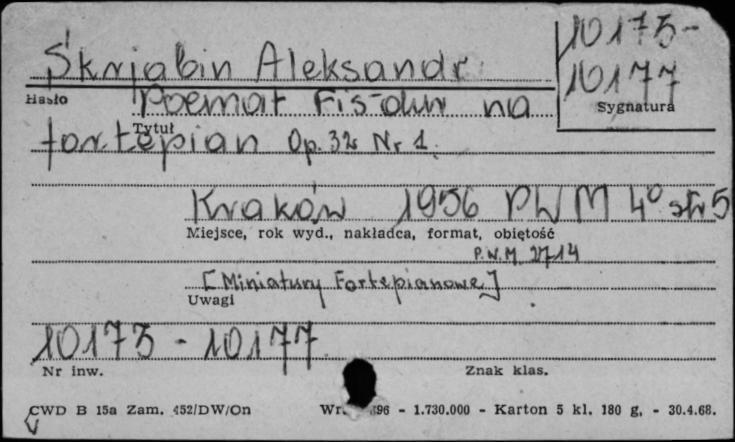 Skrjabin Aleksandr
10173-
10177
Hasło
Sygnatura
Poemat Fis-dur na
Tytuł
fortepian Op. 32 Nr 1.
Kraków 1956 PWM 4° str 5
Miejsce, rok wyd., nakładca, format, obiętość
P.W.M. 2714
[Miniatury Fortepianowe]
Uwagi
10173 - 10177
Nr inw.
Znak klas.
CWD B 15a Zam. 452/DW/On
396 - 1.730.000 - Karton 5 kl. 180 g. - 30.4.68.